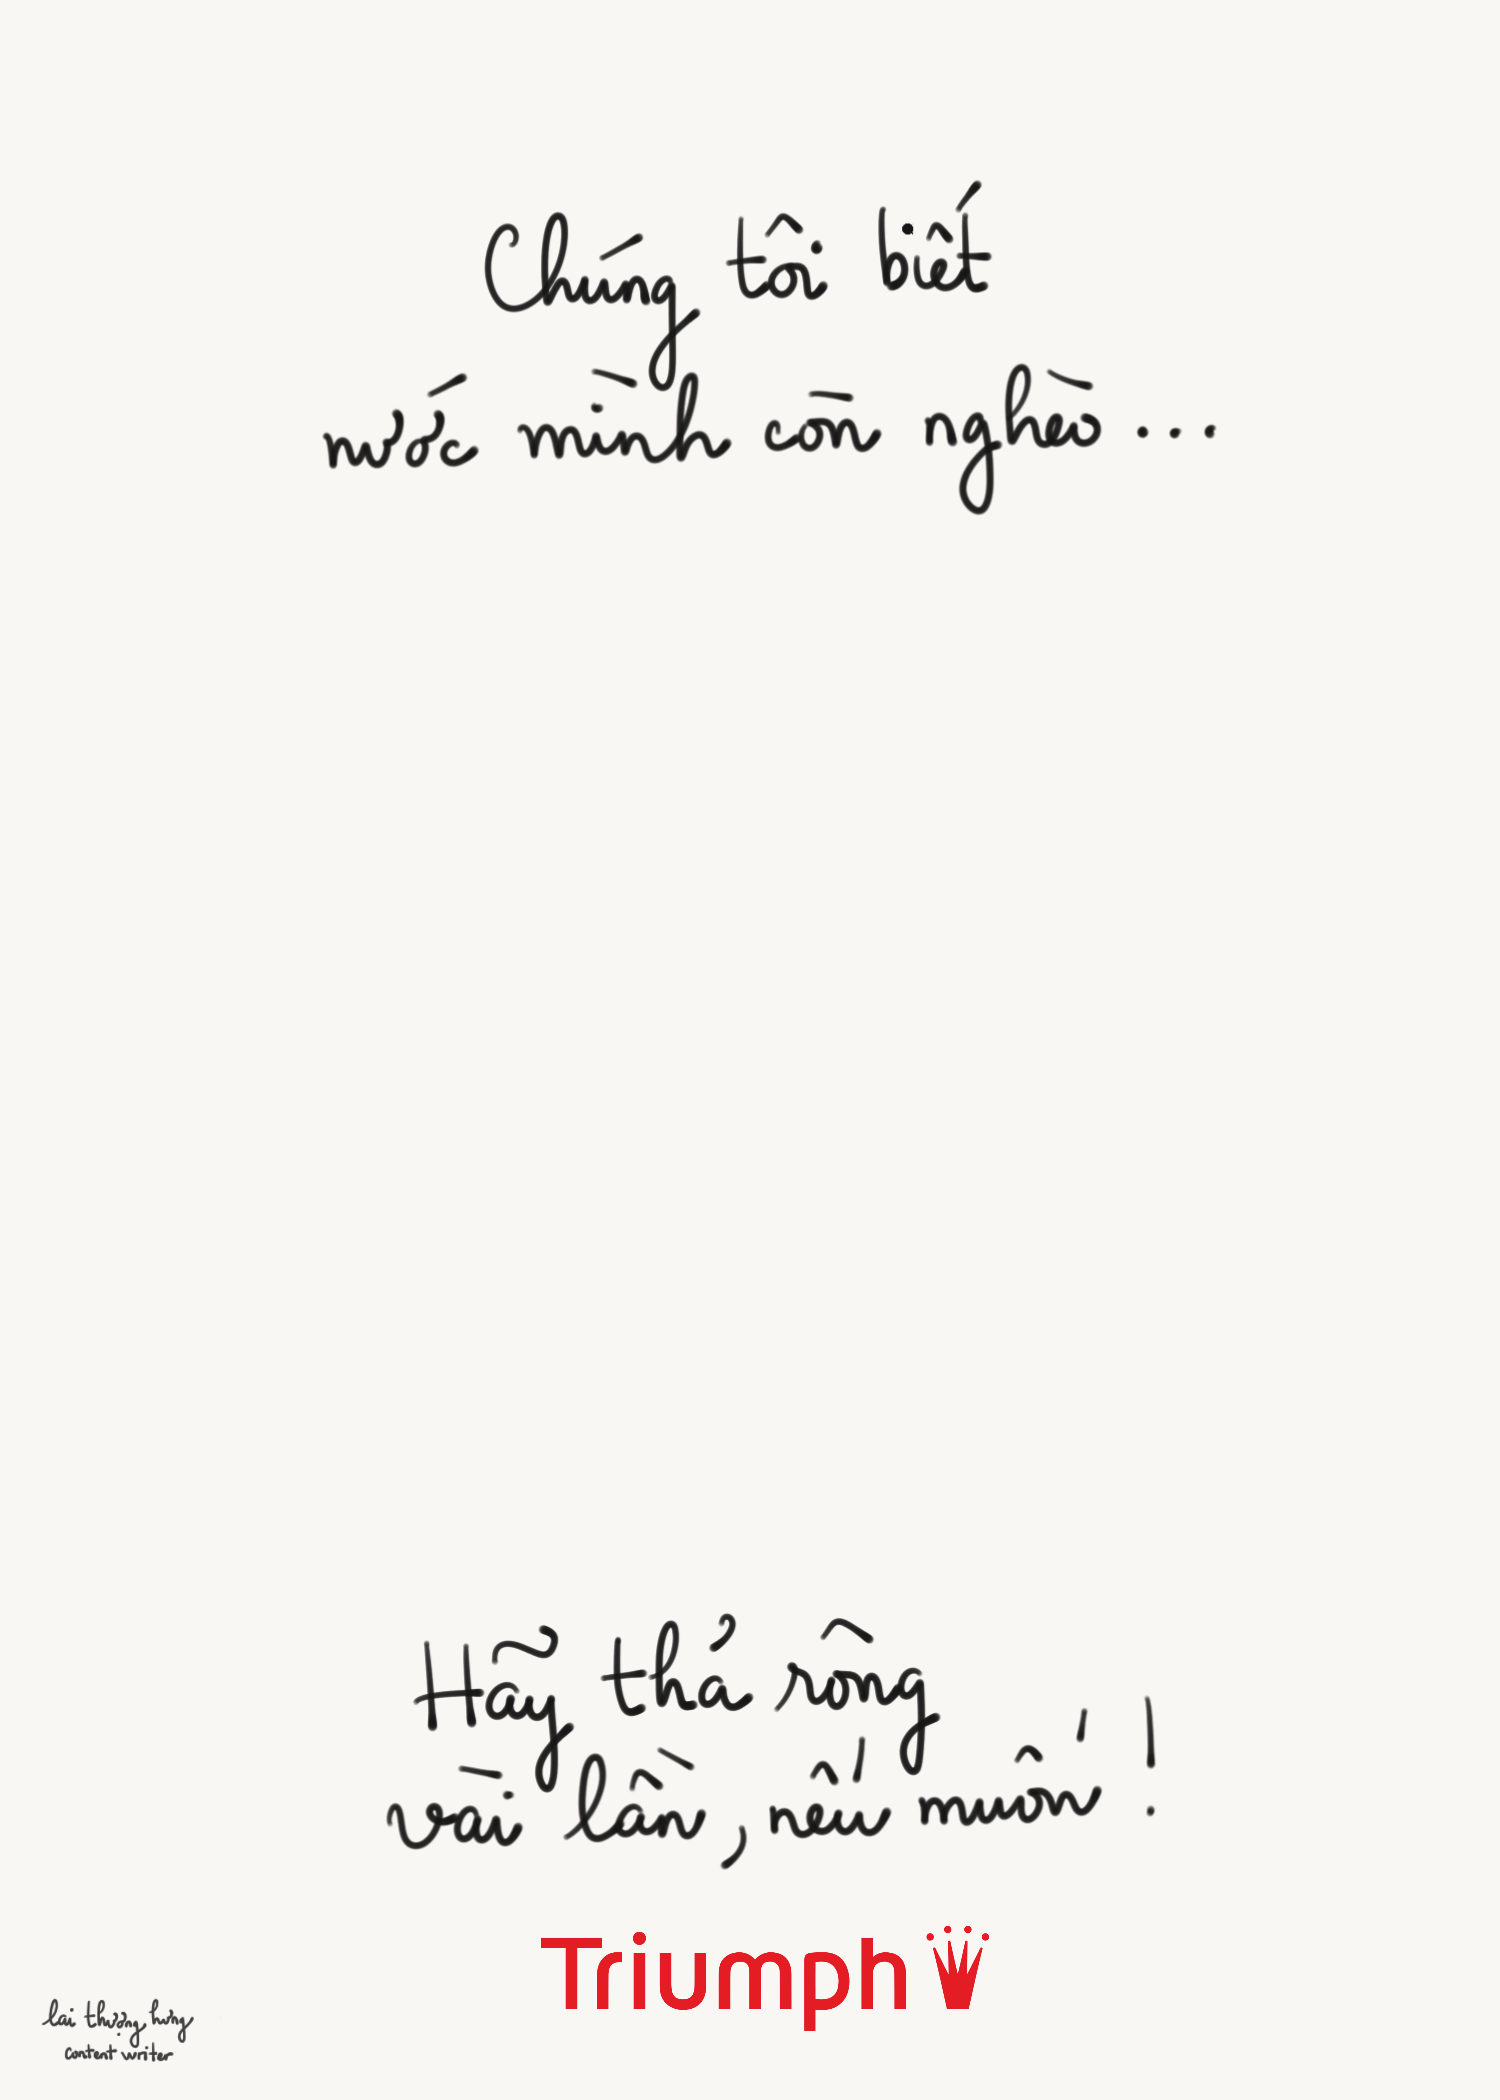 Chúng tôi biết
nước mình còn nghèo...
Hãy thả rông
vài lần, nếu muốn!
Triumph
lai thượng hưng
content writer